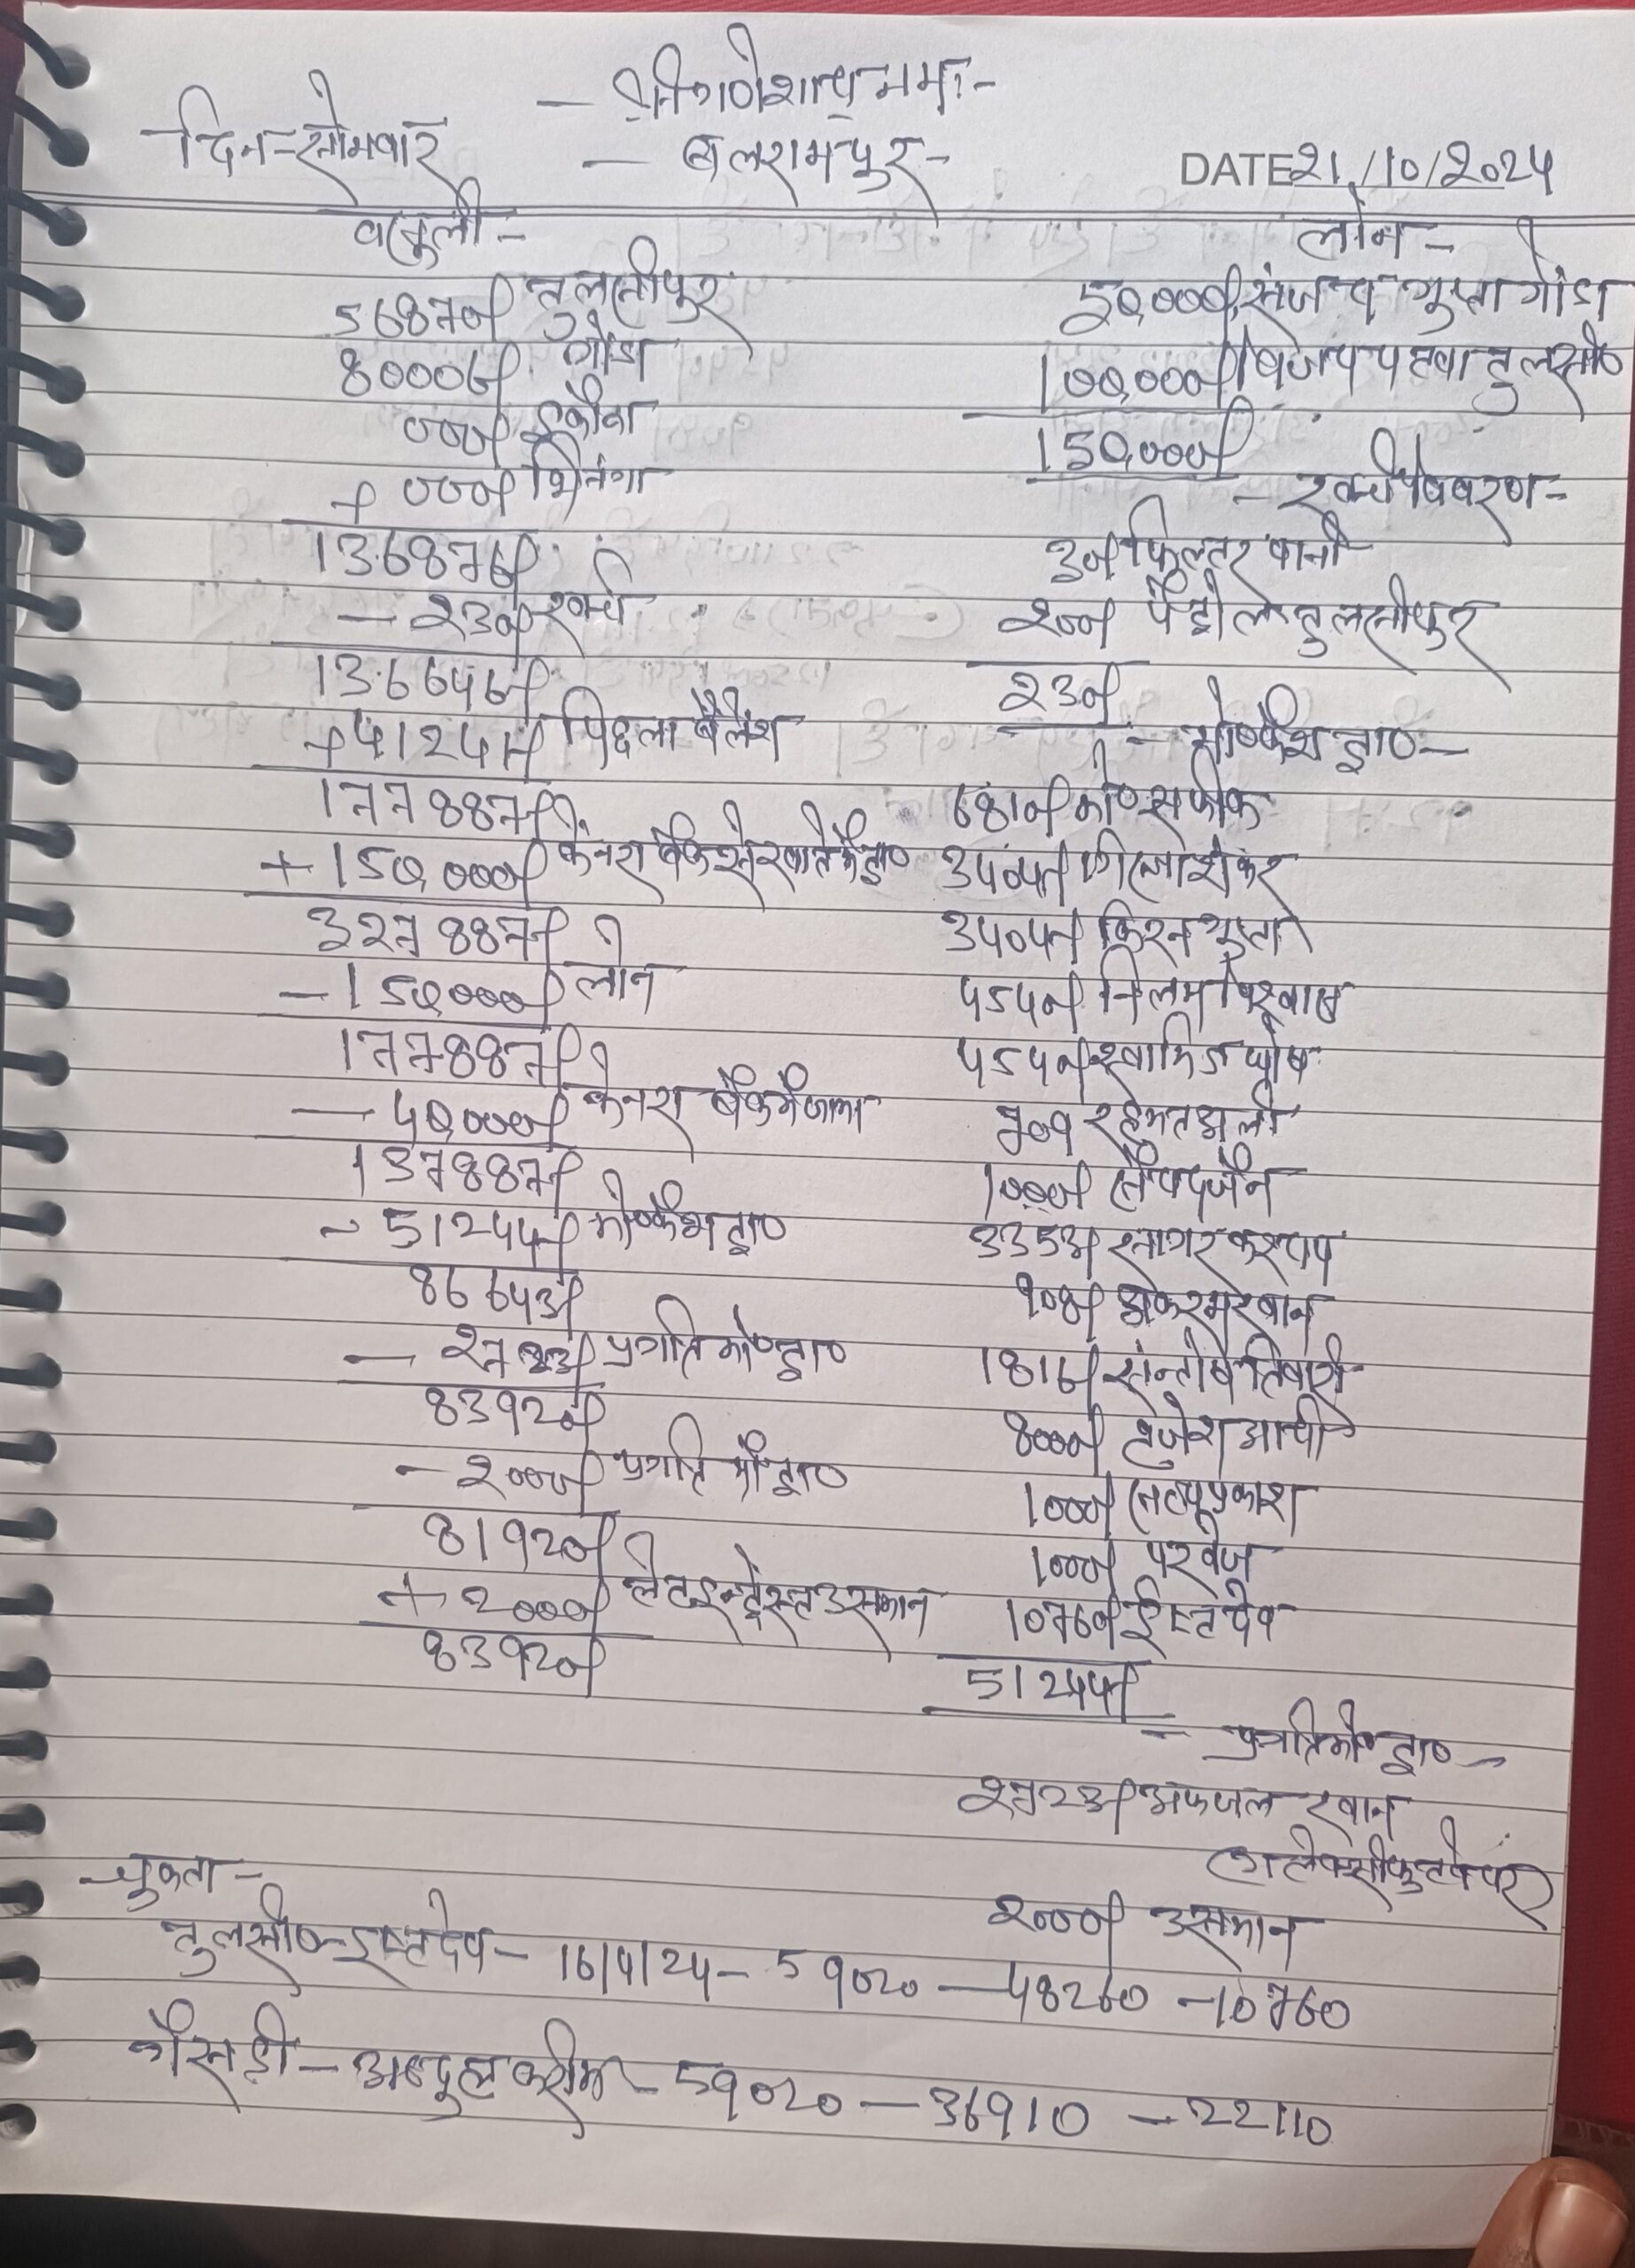 - श्री गणेशाय नमः -
दिन-सोमवार - बलरामपुर - DATE 21/10/2024
वसुली-
56870/ तुलसीपुर
80000/ गोंडा
000/ इकौना
+ 000/ भिनगा
136876/
- 230/ खर्च
136646/
+ 41241/ पिछला बैलेंश
177887/
+ 150,000/ केनरा बैंक से खाते से ड्रा०
327887/
- 150,000/ लोन
177887/
- 40,000/ केनरा बैंक में जमा
137887/
- 51244/ मो०कैश ड्रा०
86643/
- 2723/ प्रगति मो०ड्रा०
83920/
- 2000/ प्रगति मो०ड्रा०
81920/
+ 2000/ लेट इन्ट्रेस्ट उसमान
83920/
लोन-
50,000/ संजय गुप्ता गोंडा
100,000/ विजय पटवा तुलसी०
150,000/
- खर्च विवरण -
30/ फिल्टर पानी
200/ पेट्रोल तुलसीपुर
230/
- मो०कैश ड्रा० -
6810/ मो० सफीक
3404/ शंकर
3404/ किरन गुप्ता
4540/ निलम विश्वास
4540/ घोष
709 रहमत अली
1000/ जैन
3353/ सागर कश्यप
908/ अकरम खान
1816/ संन्तोष तिवारी
8000/ बृजेश
1000/ सत्यप्रकाश
1000/ परवेज
10760/ ईष्टदेव
51244/
- प्रगति मो० ड्रा० -
2723/ अफजल खान
2000/ उसमान
चुकता-
तुलसी०-इष्टदेव- 16/4/24- 59020 - 48260 - 10760
गैसड़ी - अब्दुल करीम - 59020 - 36910 - 22110